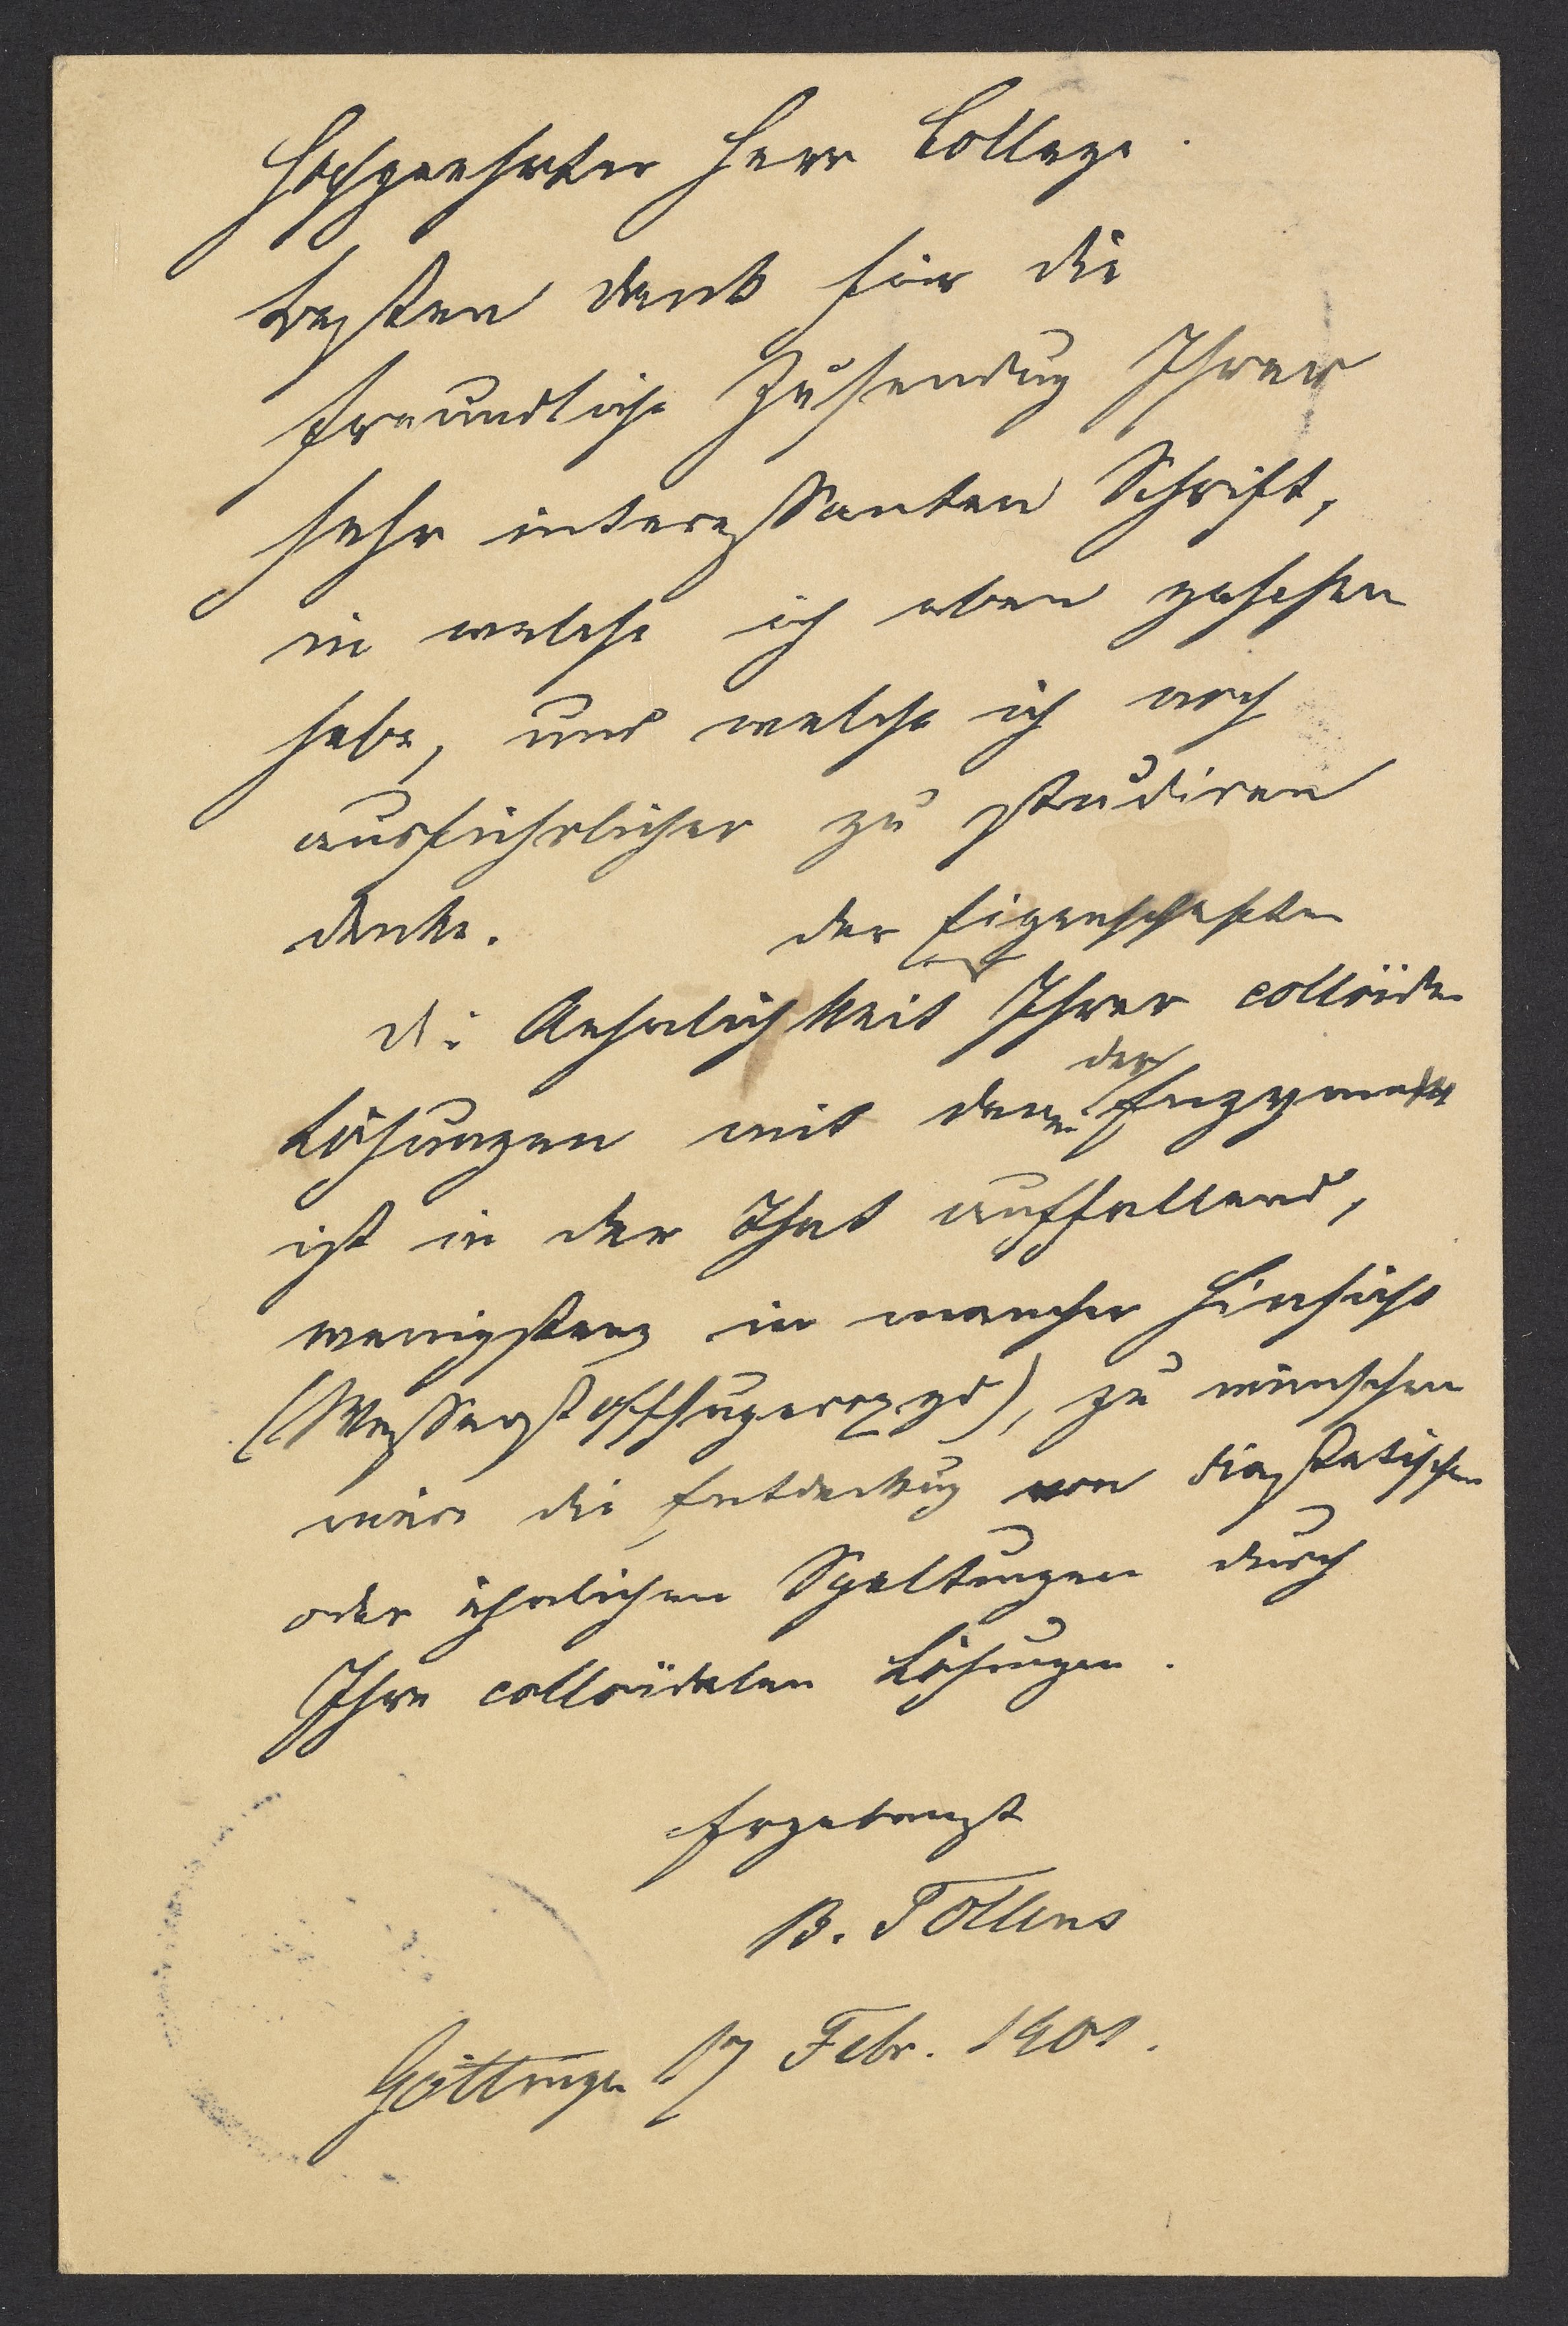 Hochgeehrter Herr College.
besten Dank für die
freundliche Zusendung Ihrer
sehr interessanten Schrift,
in welche ich eben gesehen
habe, und welche ich noch
ausführlicher zu studiren
denke.
der Eigenschaften
die Aehnlichkeit Ihrer colloïden
der
Lösungen mit denen Enzyme
ist in der That auffallend,
wenigstens in mancher Hinsicht
(Wasserstoffsuperoxyd), zu wünschen
wäre die Entdeckung von diastatischen
oder ähnlichen Spaltungen durch
Ihre colloïdalen Lösungen.
Ergebenst
B. Tollens
Göttingen 17 Febr. 1901.